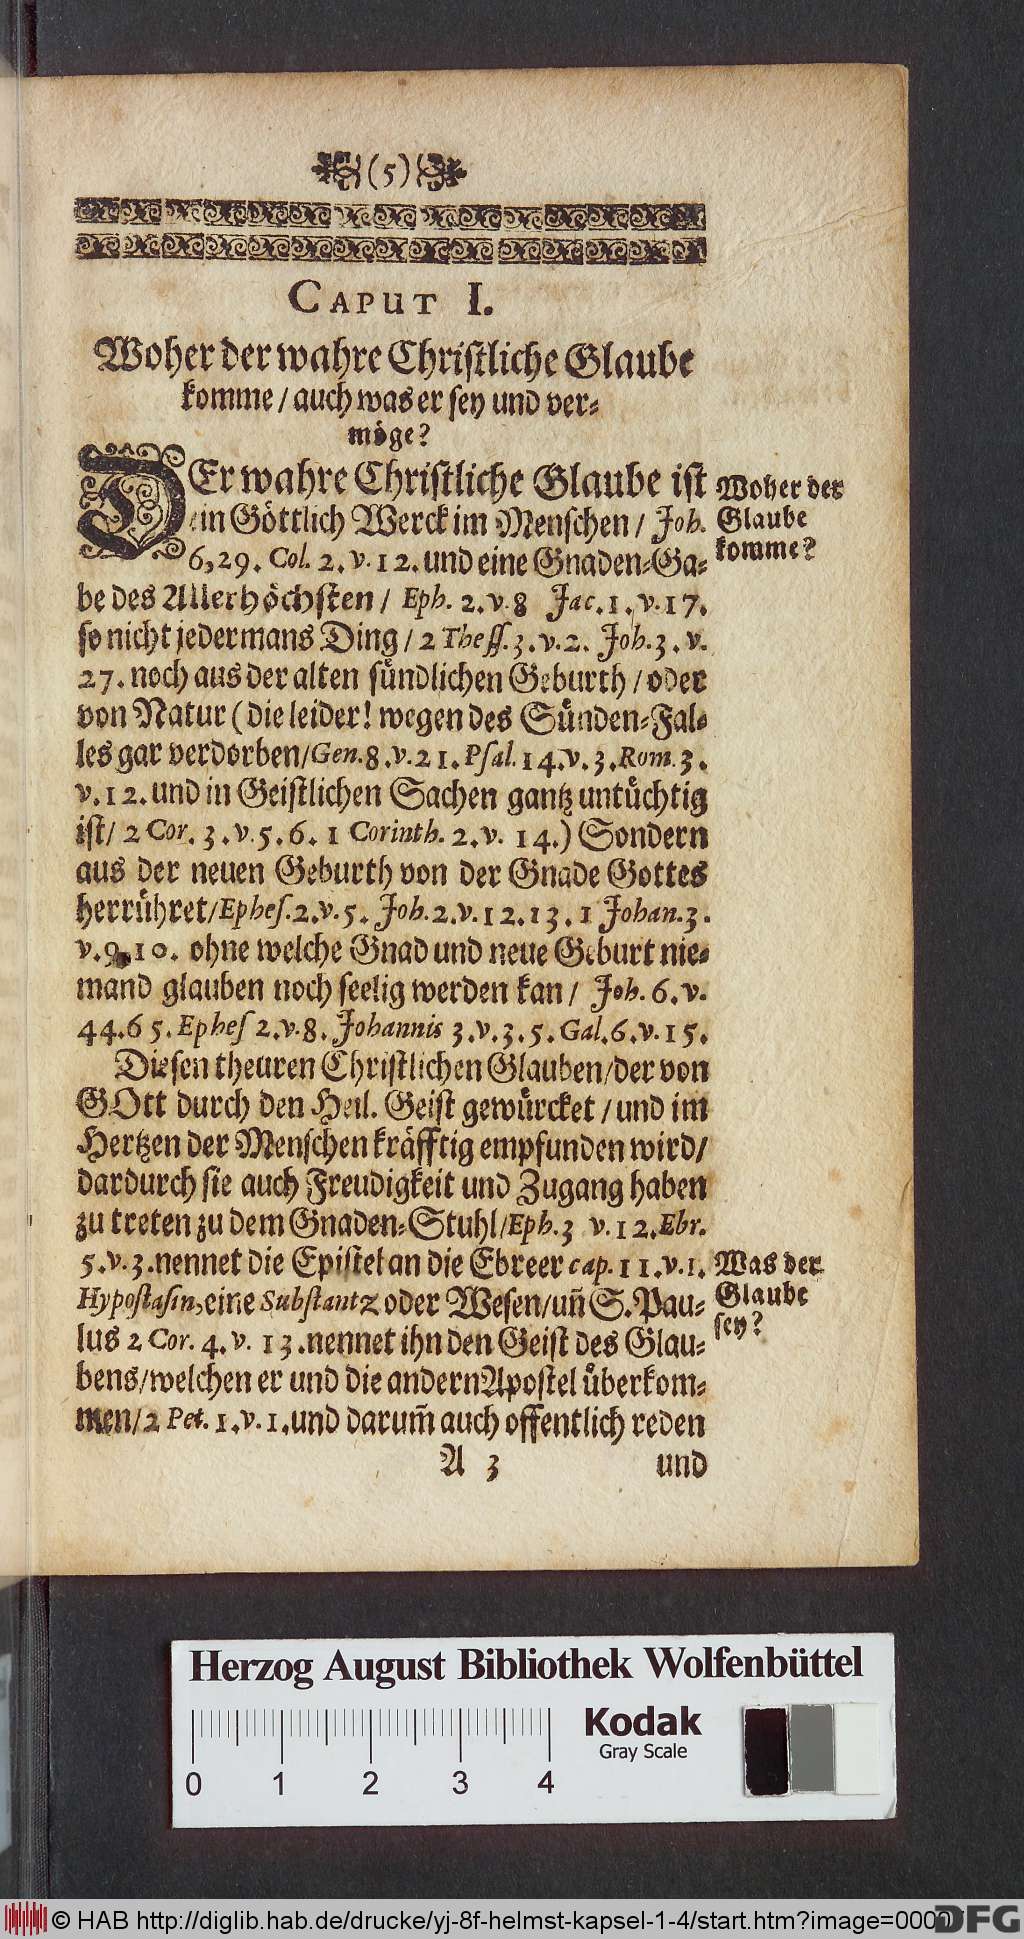 (5)
CAPUT I.
Woher der wahre Christliche Glaube
komme / auch was er sey und ver-
möge?
DEr wahre Christliche Glaube ist
ein Göttlich Werck im Menschen / Joh.
6,29. Col. 2. v. 12. und eine Gnaden-Ga-
be des Allerhöchsten / Eph. 2. v. 8 Jac. 1. v. 17.
so nicht jedermans Ding / 2 Thess. 3. v. 2. Joh. 3. v.
27. noch aus der alten sündlichen Geburth / oder
von Natur (die leider! wegen des Sünden-Fal-
les gar verdorben / Gen. 8. v. 21. Psal. 14. v. 3. Rom. 3.
v. 12. und in Geistlichen Sachen gantz untüchtig
ist / 2 Cor. 3. v. 5. 6. 1 Corinth. 2. v. 14.) Sondern
aus der neuen Geburth von der Gnade Gottes
herrühret / Ephes. 2. v. 5. Joh. 2. v. 12. 13. 1 Johan. 3.
v. 9. 10. ohne welche Gnad und neue Geburt nie-
mand glauben noch seelig werden kan / Joh. 6. v.
44. 65. Ephes 2. v. 8. Johannis 3. v. 3. 5. Gal. 6. v. 15.
Diesen theuren Christlichen Glauben / der von
GOtt durch den Heil. Geist gewürcket / und im
Hertzen der Menschen kräfftig empfunden wird /
dardurch sie auch Freudigkeit und Zugang haben
zu treten zu dem Gnaden-Stuhl / Eph. 3 v. 12. Ebr.
5. v. 3. nennet die Epistel an die Ebreer cap. 11. v. 1.
Hypostasin, eine Substantz oder Wesen / uñ S. Pau-
lus 2 Cor. 4. v. 13. nennet ihn den Geist des Glau-
bens / welchen er und die andern Apostel überkom-
men / 2 Pet. 1. v. 1. und darum̃ auch offentlich reden
A 3 und
Woher der
Glaube
komme?
Was der
Glaube
sey?
Herzog August Bibliothek Wolfenbüttel
Kodak
Gray Scale
0 1 2 3 4
© HAB http://diglib.hab.de/drucke/yj-8f-helmst-kapsel-1-4/start.htm?image=0000
DFG